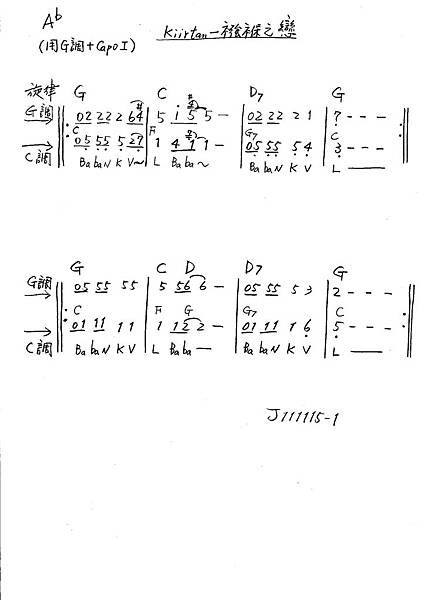 A♭
Kiirtan — 襁褓之戀
(用G調+Capo I)
旋律 G C D7 G
G調 ‖: 02 22 2 64 | 5 i 5 5 - | 02 22 2 1 | 7 - - - :‖
C F G7 C
C調 05 55 5 27 | 1 4 1 1 - | 05 55 5 4 | 3 - - -
Ba ba N K V~ L Ba ba ~ Ba ba N K V L
G C D D7 G
G調 ‖: 05 55 55 | 5 56 6 - | 05 55 5 3 | 2 - - - :‖
C F G G7 C
C調 01 11 11 | 1 12 2 - | 01 11 1 6 | 5 - - -
Ba ba N K V L Ba ba — Ba ba N K V L
J111115-1